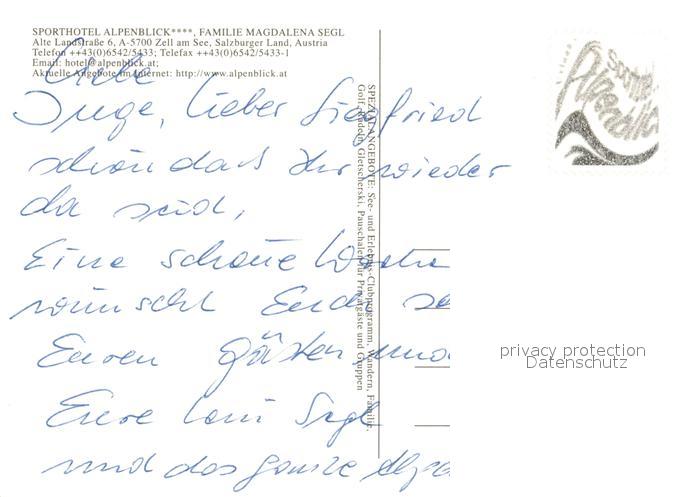 SPORTHOTEL ALPENBLICK****, FAMILIE MAGDALENA SEGL
Alte Landstraße 6, A-5700 Zell am See, Salzburger Land, Austria
Telefon ++43(0)6542/5433; Telefax ++43(0)6542/5433-1
Email: hotel@alpenblick.at;
Aktuelle Angebote im Internet: http://www.alpenblick.at
Liebe
Inge, lieber Siegfried
schön das Ihr wieder
da seid,
Eine schöne Woche
wünscht Euch
Euren Gästen und
Eure Loni Segl
und das ganze
SPEZIALANGEBOTE: See- und Erlebnis-Clubprogramm, Wandern, Familie,
Golf, Radeln, Gletscherski, Pauschalen für Privatgäste und Gruppen
Sporthotel
Alpenblick
privacy protection
Datenschutz